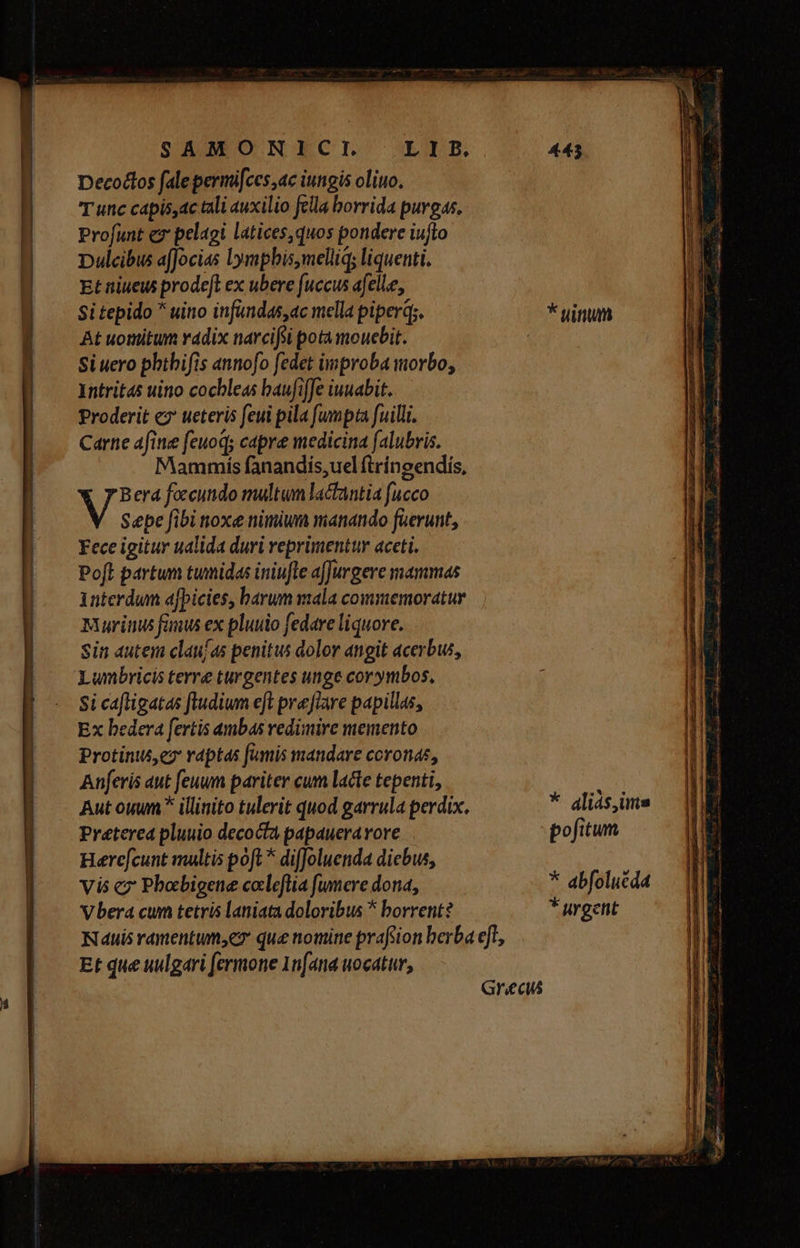 SAMONICI LIB. 443
Decoctos ſale permiſces, ac iungis oliuo.
Tunc capis, ac tali auxilio fella horrida purgas.
Proſunt & pelagi latices, quos pondere iuſto
Dulcibus aſſocias lymphis, melliq́; liquenti.
Et niueus prodeſt ex ubere ſuccus aſellæ,
Si tepido * uino infundas, ac mella piperq́;. * uinum
At uomitum radix narciſsi pota mouebit.
Si uero phthiſis annoſo ſedet improba morbo,
Intritas uino cochleas hauſiſſe iuuabit.
Proderit & ueteris ſeui pila ſumpta ſuilli.
Carne aſinæ ſeuoq́; capræ medicina ſalubris.
Mammis ſanandis, uel ſtringendis.
VBera fœcundo multum lactantia ſucco
Sæpe ſibi noxæ nimium manando fuerunt,
Fece igitur ualida duri reprimentur aceti.
Poſt partum tumidas iniuſte aſſurgere mammas
Interdum aſpicies, harum mala commemoratur
Murinus fimus ex pluuio fedare liquore.
Sin autem clauſas penitus dolor angit acerbus,
Lumbricis terræ turgentes unge corymbos.
Si caſtigatas ſtudium eſt præſtare papillas,
Ex hedera ſertis ambas redimire memento
Protinus, & raptas fumis mandare coronas,
Anſeris aut ſeuum pariter cum lacte tepenti,
Aut ouum * illinito tulerit quod garrula perdix. * aliàs, im⸗
Præterea pluuio decocta papauera rore poſitum
Hæreſcunt multis pòſt * diſſoluenda diebus,
Vis & Phœbigenæ cœleſtia ſumere dona, * abſoluẽda
Vbera cum tetris laniata doloribus * horrent? * urgent
Nauis ramentum, & quæ nomine praſsion herba eſt,
Et quæ uulgari ſermone Inſana uocatur,
Græcus